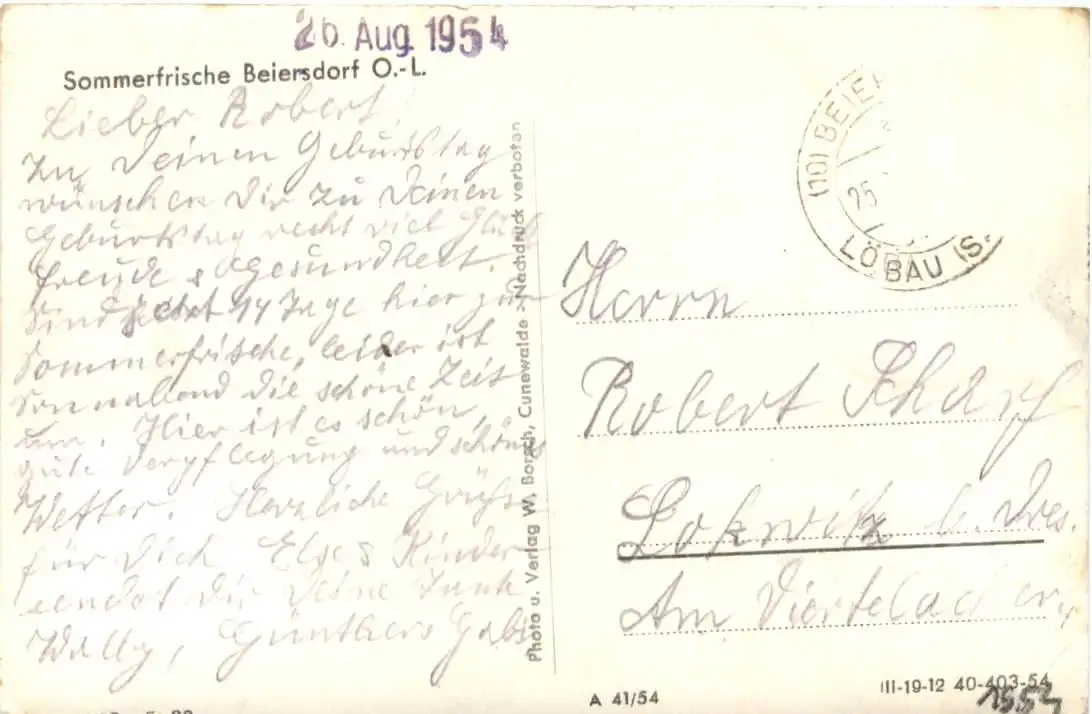 26. Aug. 1954
Sommerfrische Beiersdorf O.-L.
Lieber Robert,
Zu Deinen Geburtstag
wünschen Dir zu Deinen
Geburtstag recht viel Glück
Freude & Gesundheit.
Sind jetzt 14 Tage hier zur
Sommerfrische, leider ist
Sonnabend die schöne Zeit
um. Hier ist es schön,
gute Verpflegung und schönes
Wetter. Herzliche Grüße
für Dich Else & Kinder
sendet Dir Deine Tante
Wally, Günther & Gabi
Photo u. Verlag W. Borsch, Cunewalde - Nachdruck verboten
(10) BEIER
25
LÖBAU (S.
Herrn
Robert
Lokwitz b. Dres.
Am Viertelacker
A 41/54
III-19-12 40-403-54
1954